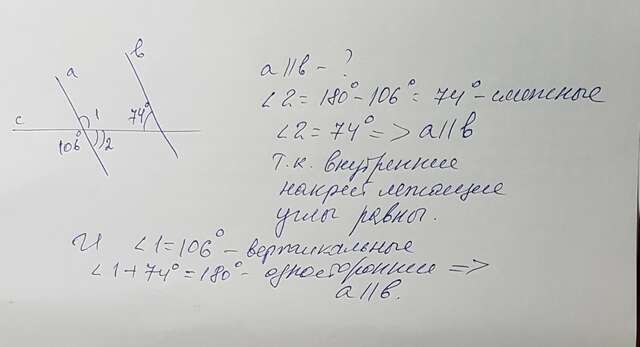 a
b
c
1
74°
106°
2
a||b - ?
∠2 = 180° - 106° = 74° - смежные
∠2 = 74° => a||b
т.к. внутренние
накрест лежащие
углы равны.
И ∠1 = 106° - вертикальные
∠1 + 74° = 180° - односторонние =>
a||b.